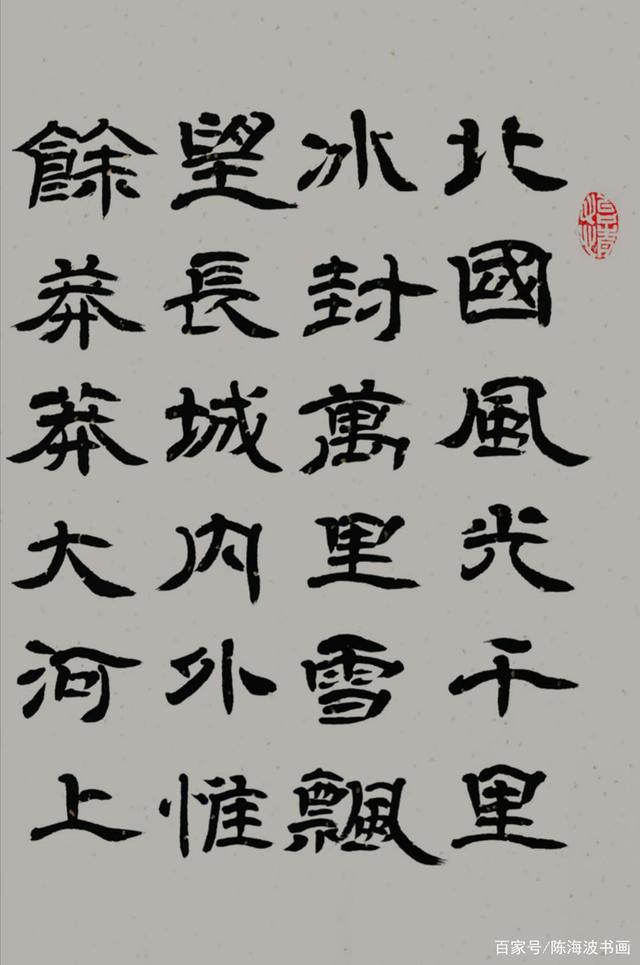 北國風光千里
冰封萬里雪飄
望長城内外惟
餘莽莽大河上
百家号/陈海波书画